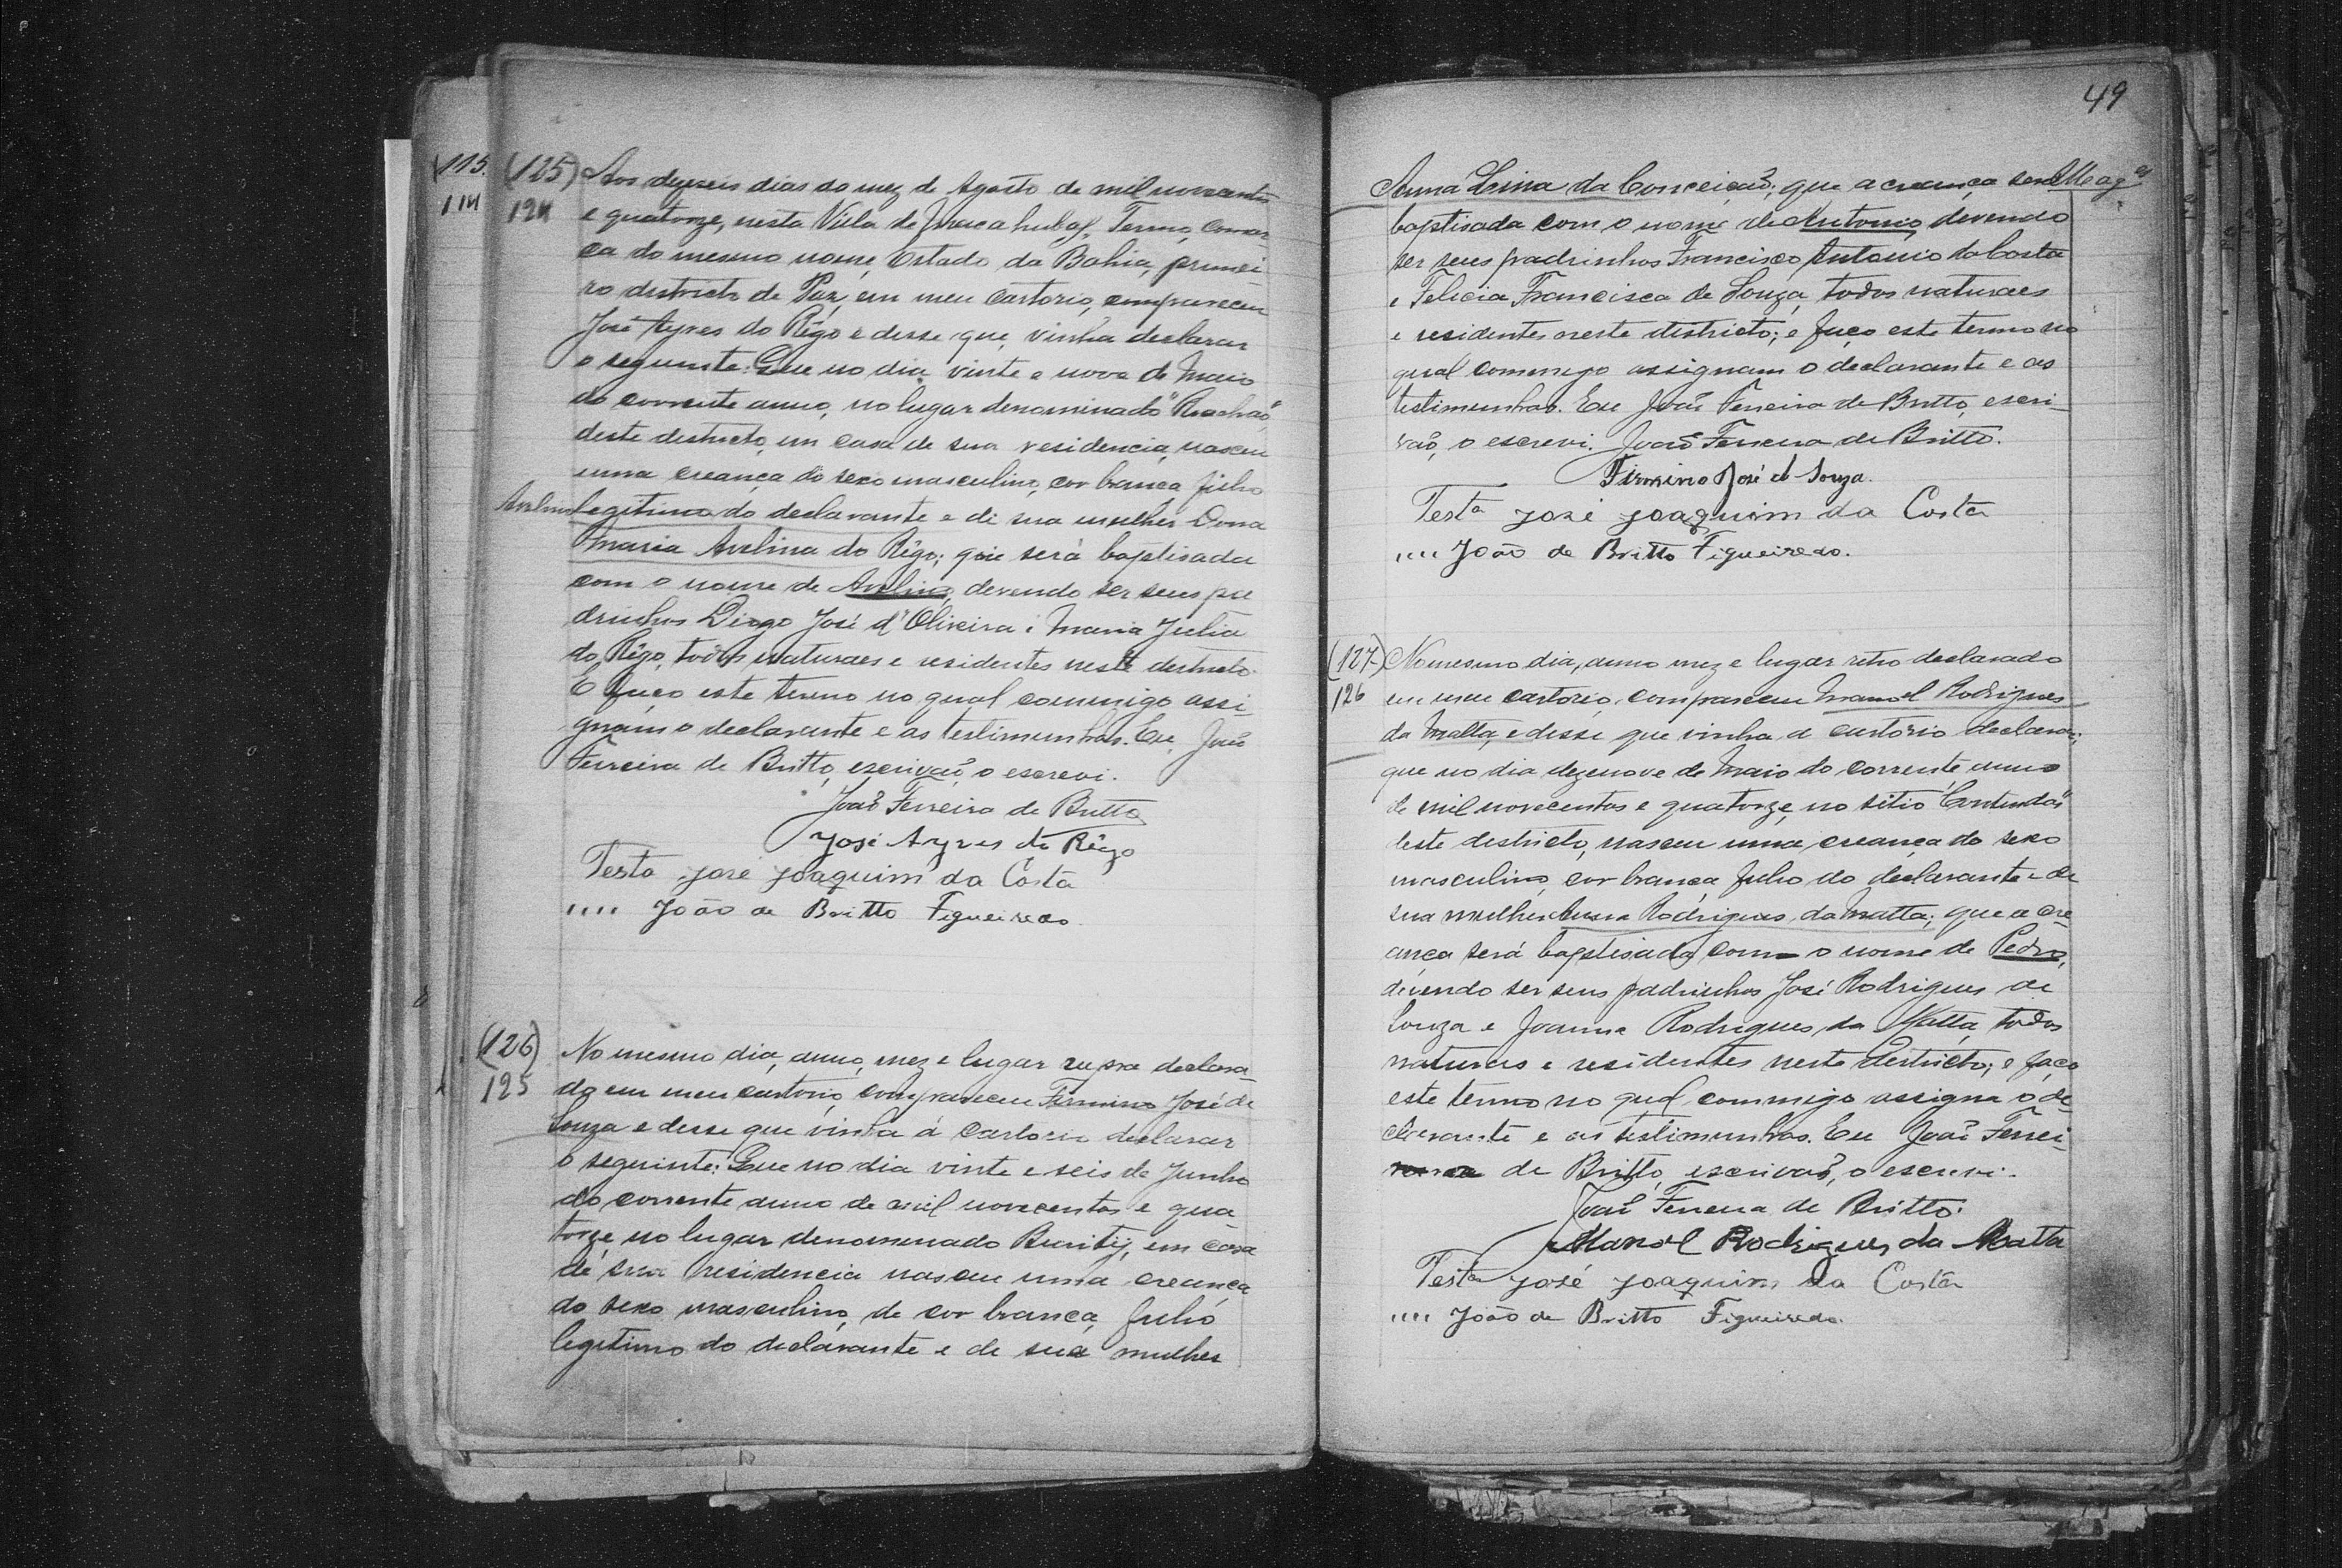 (115.
114
(125) Aos dezeseis dias do mez de Agosto de mil novecentos
124 e quatorze, nesta Villa de Macahubas, Termo, Comar
ca do mesmo nome, Estado da Bahia, primei
ro districto de Paz, em meu cartorio, compareceu
José Ayres do Rêgo e disse que vinha declarar
o seguinte: Que no dia vinte e nove de Maio
do corrente anno, no lugar denominado "Riachão",
deste districto, em casa de sua residencia, nasceu
uma creança do sexo masculino, cor branca, filho
Avelino legitimo do declarante e de sua mulher Dona
Maria Avelina do Rêgo; que será baptisada
com o nome de Avelino, devendo ser seus pa
drinhos Diogo José d'Oliveira e Maria Julia
do Rêgo, todos naturaes e residentes neste districto.
E faço este termo no qual commigo assi
gnam o declarante e as testimunhas. Eu, João
Ferreira de Britto, escrivão, o escrevi.
João Ferreira de Britto
José Ayres do Rêgo
Testa José Joaquim da Costa
"" João de Britto Figueiredo.
(126) No mesmo dia, anno, mez e lugar supra declara
125 do em meu cartorio, compareceu Firmino José de
Souza e disse que vinha á cartorio declarar
o seguinte: Que no dia vinte e seis de Junho
do corrente anno de mil novecentos e qua
torze, no lugar denominado Burity, em casa
de sua residencia nasceu uma creança
do sexo masculino, de cor branca, filho
legitimo do declarante e de sua mulher
49
Anna da Conceição; que a creança será
baptisada com o nome de Antonio, devendo
ser seus padrinhos Francisco Antonio da Costa
e Felicia Francisca de Souza, todos naturaes
e residentes neste districto; e faço este termo no
qual commigo assignam o declarante e as
testimunhas. Eu João Ferreira de Britto, escri-
vão, o escrevi. João Ferreira de Britto.
Firmino José de Souza.
Testa José Joaquim da Costa
"" João de Britto Figueiredo.
(127) No mesmo dia, anno mez e lugar retro declarado
126 em meu cartorio, compareceu Manoel Rodrigues
da Matta, e disse que vinha a cartorio declarar;
que no dia dezenove de Maio do corrente anno
de mil novecentos e quatorze, no sitio "Contendas"
deste districto, nasceu uma creança do sexo
masculino, cor branca, filho do declarante e de
sua mulher Anna Rodrigues da Matta; que a cre
ança será baptisada com o nome de Pedro,
devendo ser seus padrinhos José Rodrigues de
Souza e Joanna Rodrigues da Matta, todos
naturaes e residentes neste districto; e faço
este termo no qual commigo assigna o de-
clarante e as testimunhas. Eu João Ferrei-
ra de Britto, escrivão, o escrevi.
João Ferreira de Britto.
Manoel Rodrigues da Matta
Testa José Joaquim da Costa
"" João de Britto Figueiredo.